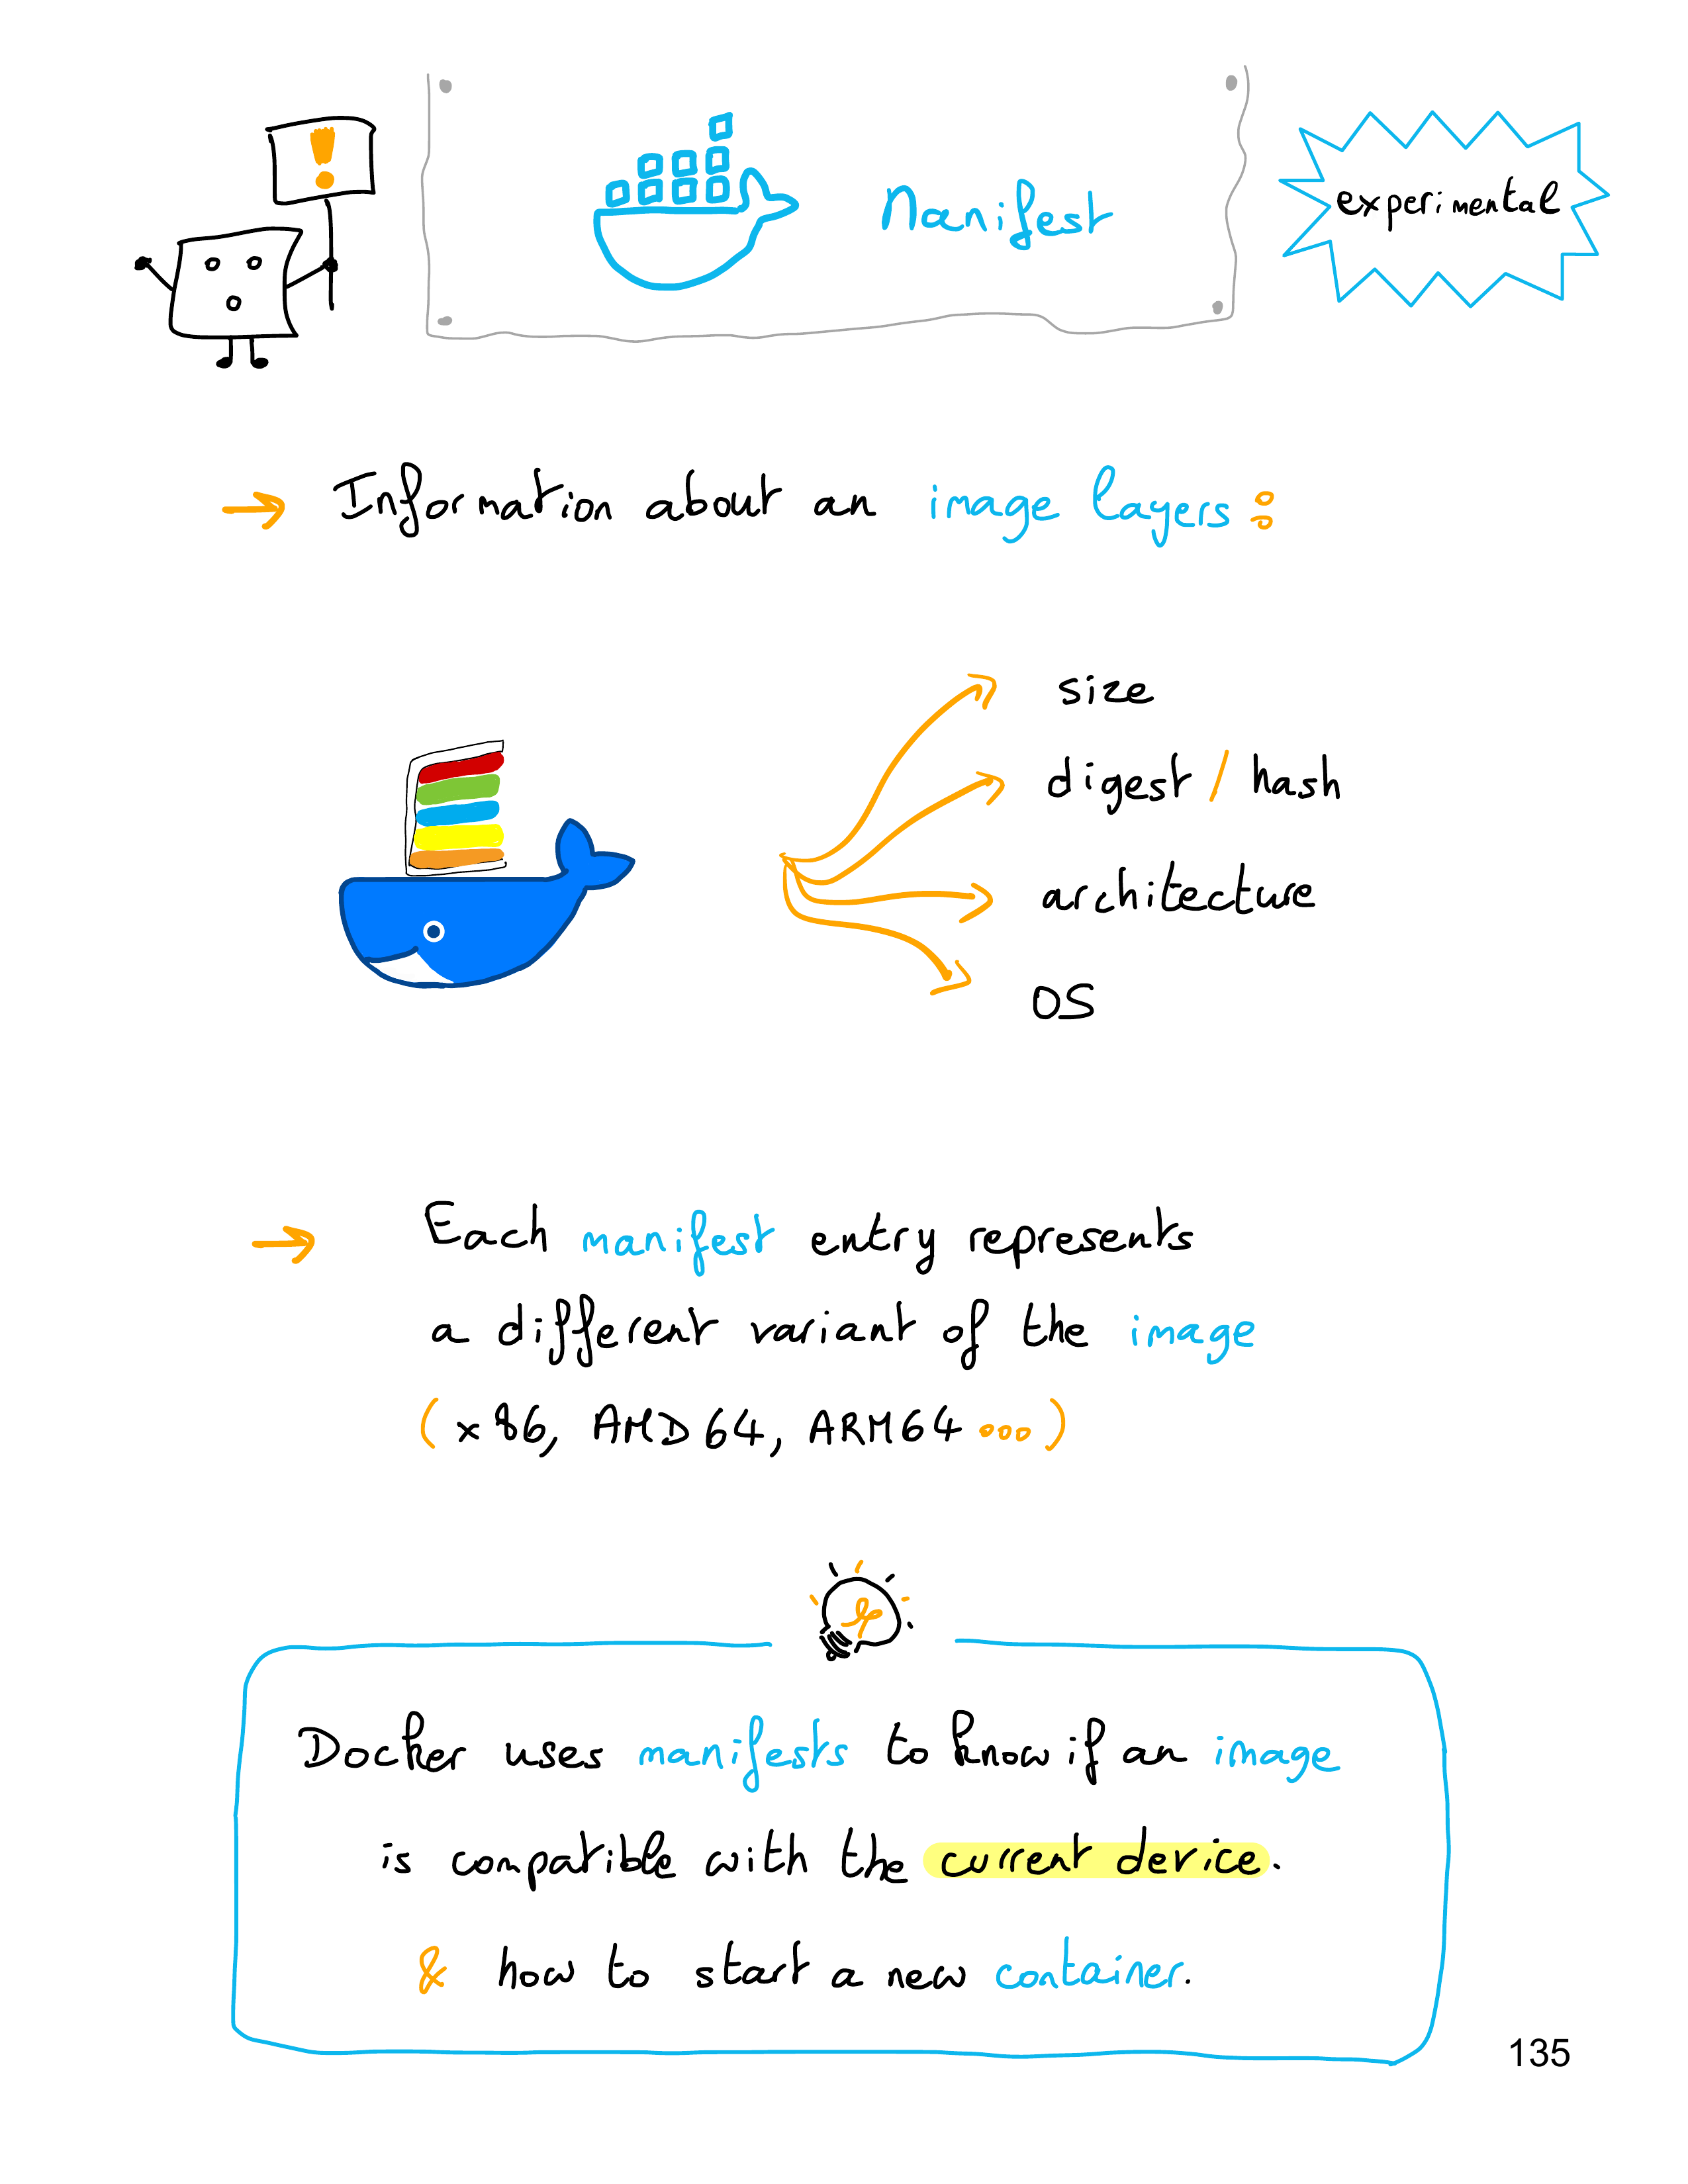 !
Manifest
experimental
→ Information about an image layers :
size
digest / hash
architecture
OS
→ Each manifest entry represents
a different variant of the image
(x86, AMD64, ARM64 ...)
Docker uses manifests to know if an image
is compatible with the current device.
& how to start a new container.
135